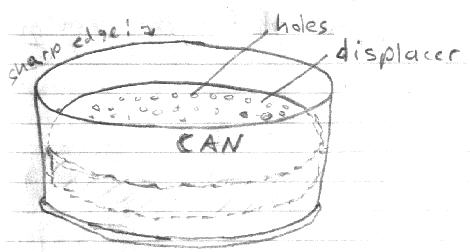 sharp edge!
holes
displacer
CAN